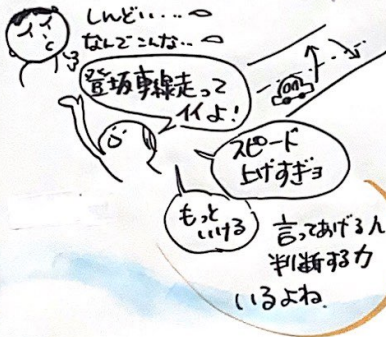 しんどい・・・
なんでこんな・・
登坂車線走って
イイよ!
スピード
上げすぎョ
もっと
いける
言ってあげる人
判断する力
いるよね.